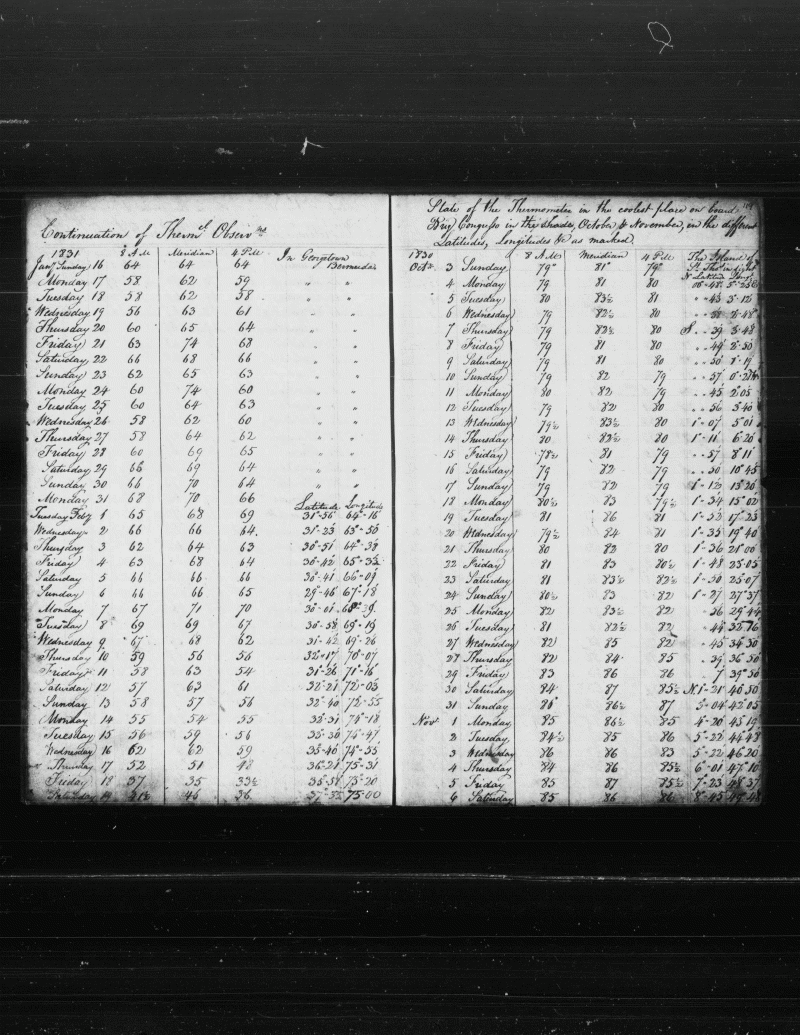 Continuation of Therml Observns
1831 8 A M Meridian 4 P.M In Georgetown Bermuda
Jany Sunday 16 64 64 64
Monday 17 58 62 59 " "
Tuesday 18 58 62 58 " "
Wednesday 19 56 63 61 " "
Thursday 20 60 65 64 " "
Friday 21 63 74 68 " "
Saturday 22 66 68 66 " "
Sunday 23 62 65 63 " "
Monday 24 60 74 60 " "
Tuesday 25 60 64 63 " "
Wednesday 26 58 62 60 " "
Thursday 27 58 64 62 " "
Friday 28 60 69 65 " "
Saturday 29 66 69 64 " "
Sunday 30 66 70 64 " "
Monday 31 68 70 66 Latitude Longitude
Tuesday Feby 1 65 68 69 31°-56 64°-16'
Wednesday 2 66 66 64 31-23 63-50
Thursday 3 62 64 63 30-51 64-38
Friday 4 63 68 64 30-42 65-32
Saturday 5 66 66 66 30-41 66-09
Sunday 6 66 66 65 29-46 67-18
Monday 7 67 71 70 30-01 68-39
Tuesday 8 69 69 67 30-58 69-19
Wednesday 9 67 68 62 31-42 69-26
Thursday 10 59 56 56 32-17 70-07
Friday 11 58 63 54 31-26 71-16
Saturday 12 57 63 61 32-21 72-03
Sunday 13 58 57 56 32-40 72-55
Monday 14 55 54 55 32-31 74-18
Tuesday 15 56 59 56 32-30 74-47
Wednesday 16 62 62 59 35-40 74-55
Thursday 17 52 51 48 36-21 75-31
Friday 18 37 35 33½ 36-51 75-20
Saturday 19 46 36 75-00
State of the Thermometer in the coolest place on board
Brig Congress in the Shade, October & November, in the different
Latitudes, Longitudes &c as marked
1830 8 A M Meridian 4 P M The Island of
St Thos
N Latitude Long
Octr 3 Sunday 79° 81° 79°
4 Monday 79 81 80 " 43 3-12
5 Tuesday 80 83½ 81
6 Wednesday 79 82½ 80 2-48
7 Thursday 79 82½ 80 S 39 3-48
8 Friday 79 81 80 49 2-30
9 Saturday 79 81 80 30 1-19
10 Sunday 79 82 79 57
11 Monday 80 82 79 45 2-05
12 Tuesday 79 82 80 56 3-40
13 Wednesday 79½ 83½ 80 1-07 5-01
14 Thursday 80 82½ 80 1-11 6-20
15 Friday 78½ 81 79 57 8-11
16 Saturday 79 82 79 50 10-45
17 Sunday 79 82 79 1-12 13-20
18 Monday 80½ 83 79½ 1-34 15-02
19 Tuesday 81 86 81 1-52 17-23
20 Wednesday 79½ 84 81 1-35 19-40
21 Thursday 80 82 80 1-36 21-00
22 Friday 81 83 80½ 1-48 23-05
23 Saturday 81 83½ 82½ 1-50 25-07
24 Sunday 80½ 83 82 1-27 27-37
25 Monday 82 83½ 82 36 29-44
26 Tuesday 81 82½ 82 44 32-16
27 Wednesday 82 85 82 45 34-30
28 Thursday 82 84 85 39 36-50
29 Friday 83 86 86 7 39-50
30 Saturday 84 87 85½ N 1-21 40-50
31 Sunday 86 86½ 87 3-04 42-05
Novr 1 Monday 85 86½ 85 4-20 43-19
2 Tuesday 84½ 85 86 5-22 44-48
3 Wednesday 86 86 83 5-22 46-20
4 Thursday 84 86 85½ 6-01 47-10
5 Friday 85 87 85½ 7-23 48-37
6 Saturday 85 86 86 8-45 49-48